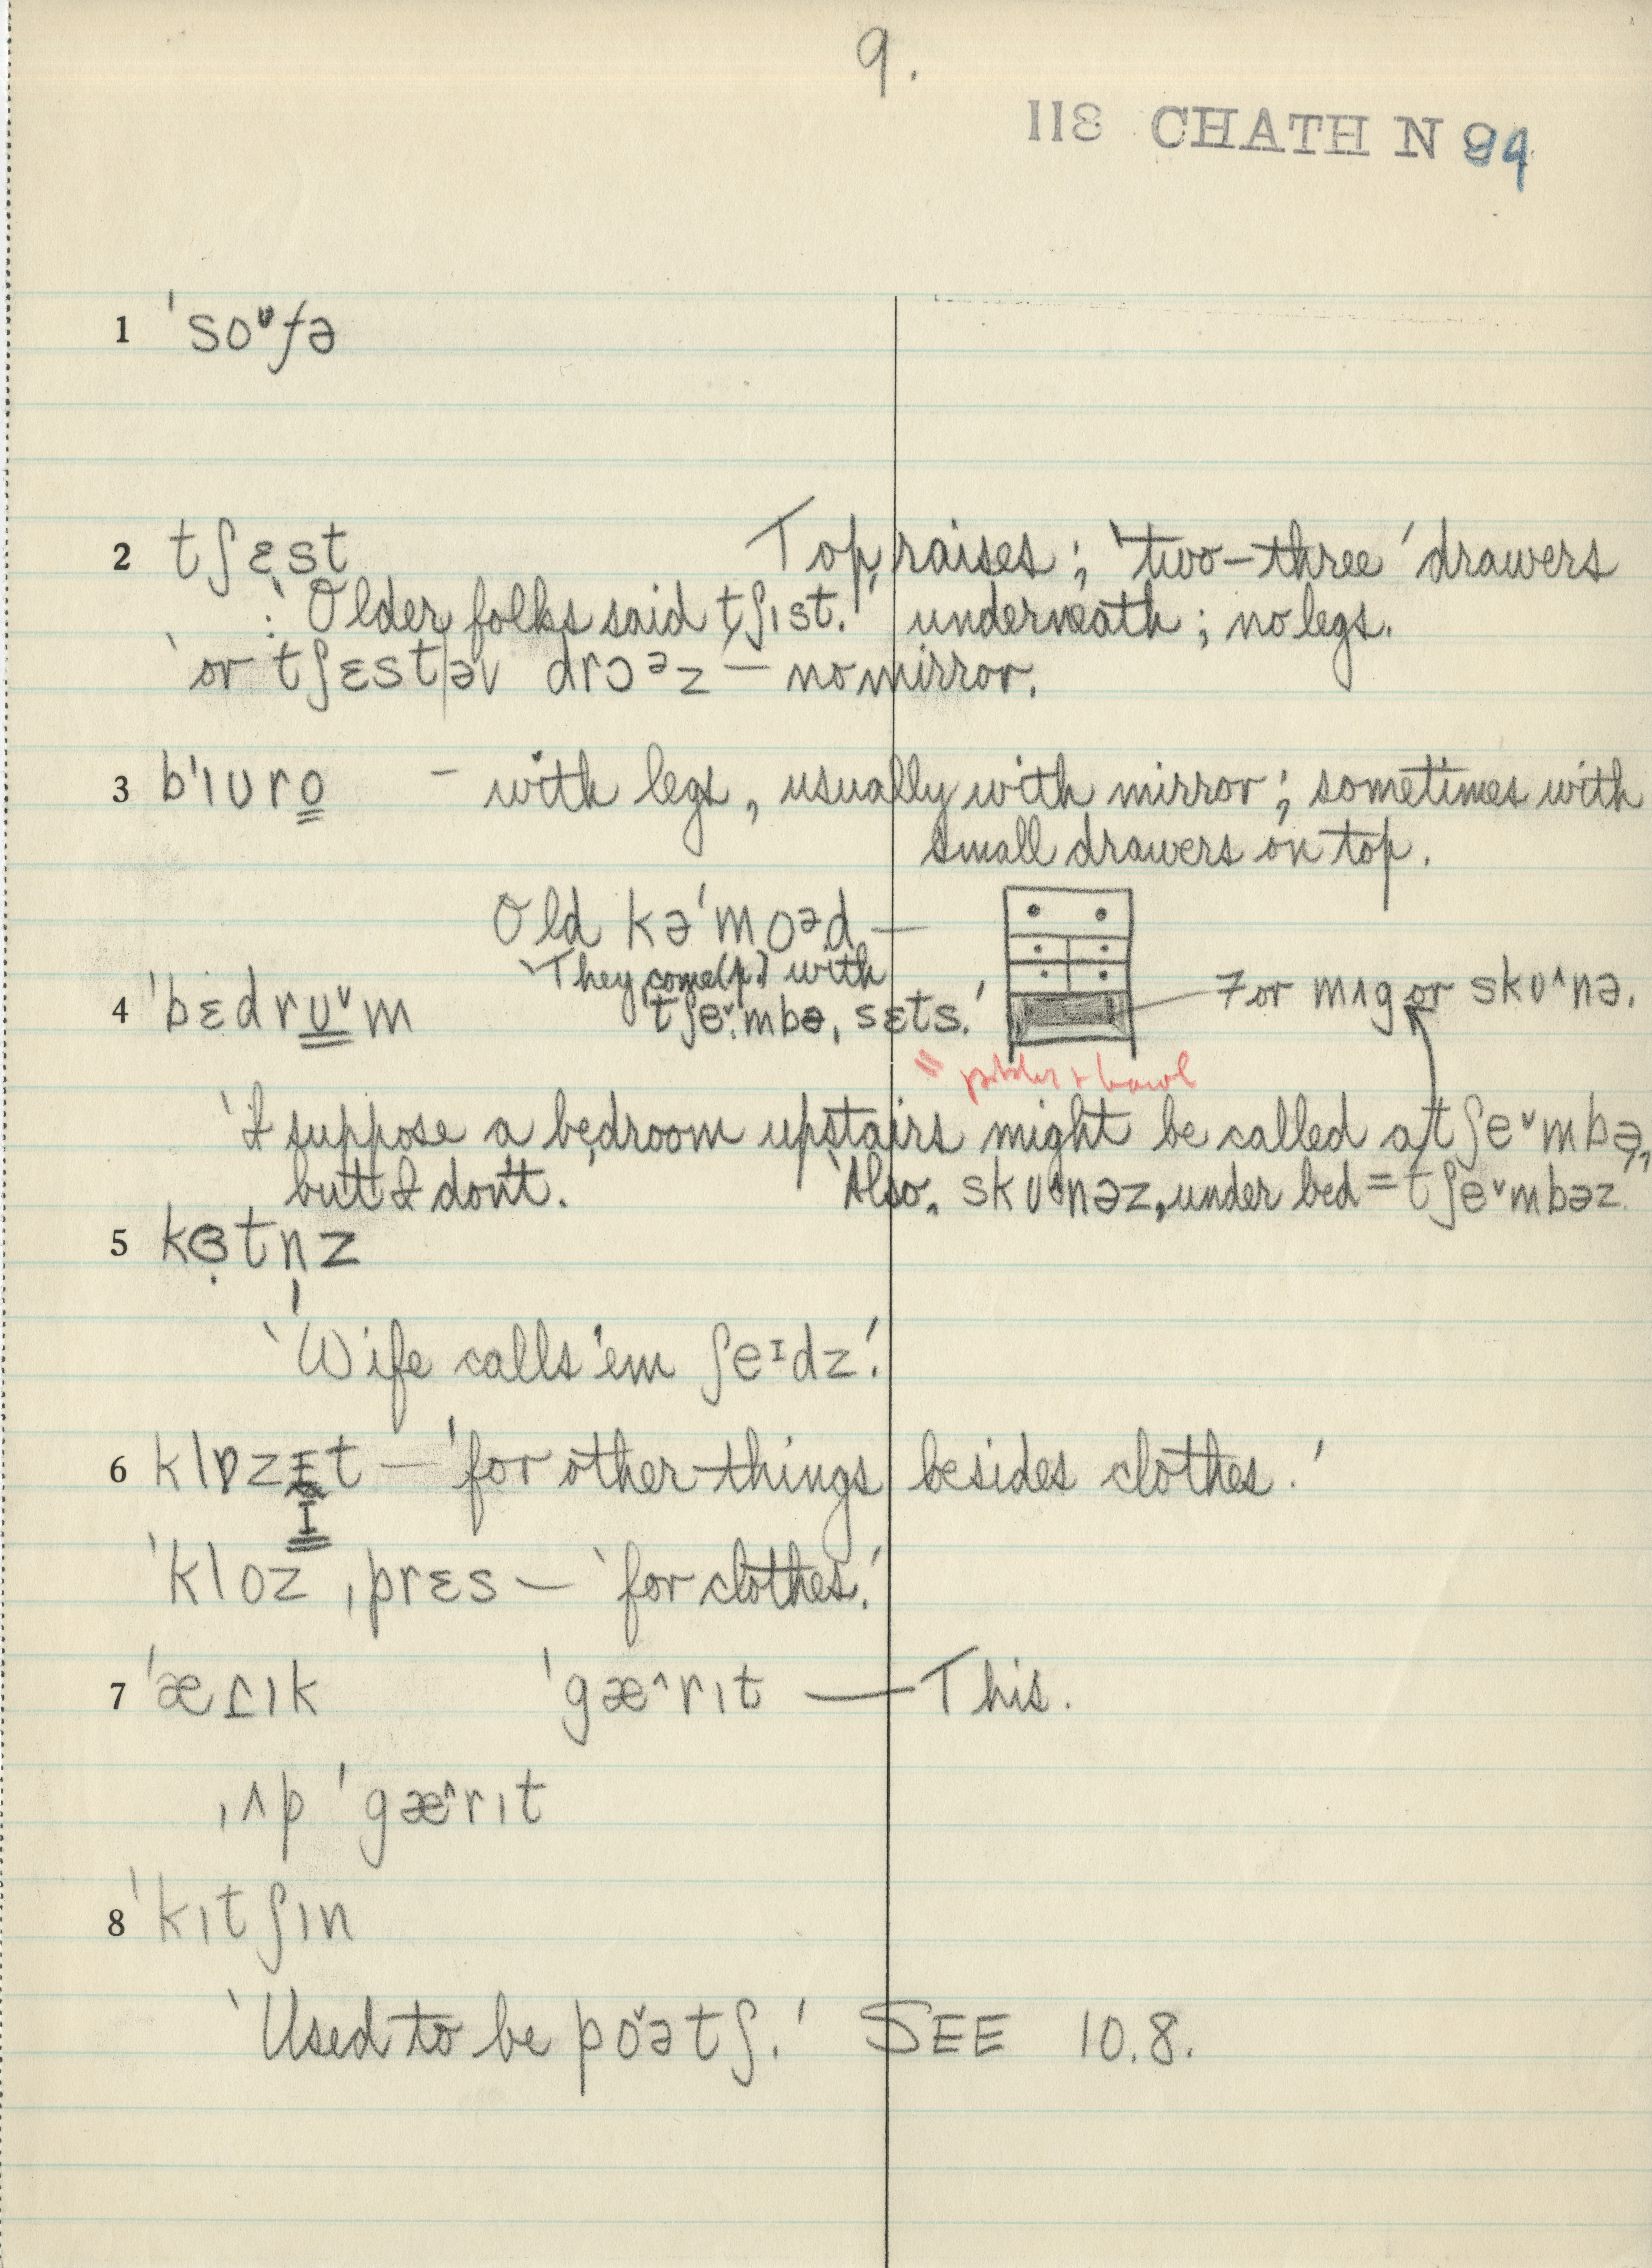 9.
118 CHATH N 94
1 ˈsoᶷfə
2 tʃɛst Top raises; 'two-three' drawers
: 'Older folks said tʃɪst.' underneath; no legs.
'or tʃɛst|əv drɔᵊz — no mirror.
3 bˈɪʊro̳ – with legs, usually with mirror; sometimes with
small drawers on top.
Old kəˈmoᵊd —
4 ˈbɛdrʊ̳ˇm 'They come(p.) with
ˈtʃeˇmbə ˌsɛts.' For mʌg or skʊ^nə.
= pitcher + bowl
'I suppose a bedroom upstairs might be called a tʃeˇmbə,
but I don't.' 'Also, skʊ^nəz, under bed = tʃeˇmbəz.'
5 kɞ̣tn̩z
'Wife calls 'em ʃeᴵdz.'
6 klɒzɪ̳t — 'for other things besides clothes.'
ˈkloz ˌprɛs — 'for clothes.'
7 ˈæɾɪk ˈgæ^rɪt — This.
ˌʌp ˈgæ^rɪt
8 ˈkɪtʃɪn
'Used to be poˇətʃ.' SEE 10.8.